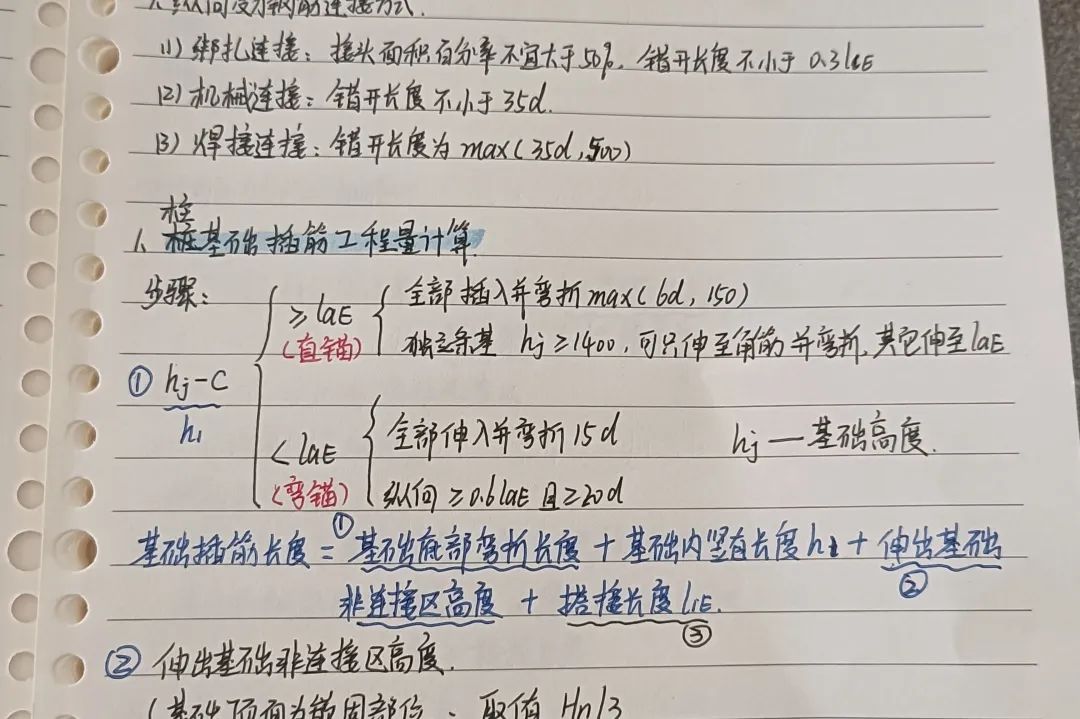 1. 纵向受力钢筋连接方式.
(1) 绑扎连接: 接头面积百分率不宜大于50%, 错开长度不小于 0.3laE
(2) 机械连接: 错开长度不小于 35d.
(3) 焊接连接: 错开长度为 max(35d, 500)
柱
1、桩基础插筋工程量计算.
步骤:
≥laE { 全部插入并弯折max(6d, 150)
(直锚) 独立条基 hj≥1400, 可只伸至角筋并弯折, 其它伸至laE
① hj-C
h1
<laE { 全部伸入并弯折15d hj—基础高度.
(弯锚) 纵向≥0.6laE且≥20d
基础插筋长度=①基础底部弯折长度+基础内竖直长度h1+伸出基础
②
非连接区高度 + 搭接长度llE.
③
② 伸出基础非连接区高度.
(基础顶面为锚固部位、取值 Hn/3